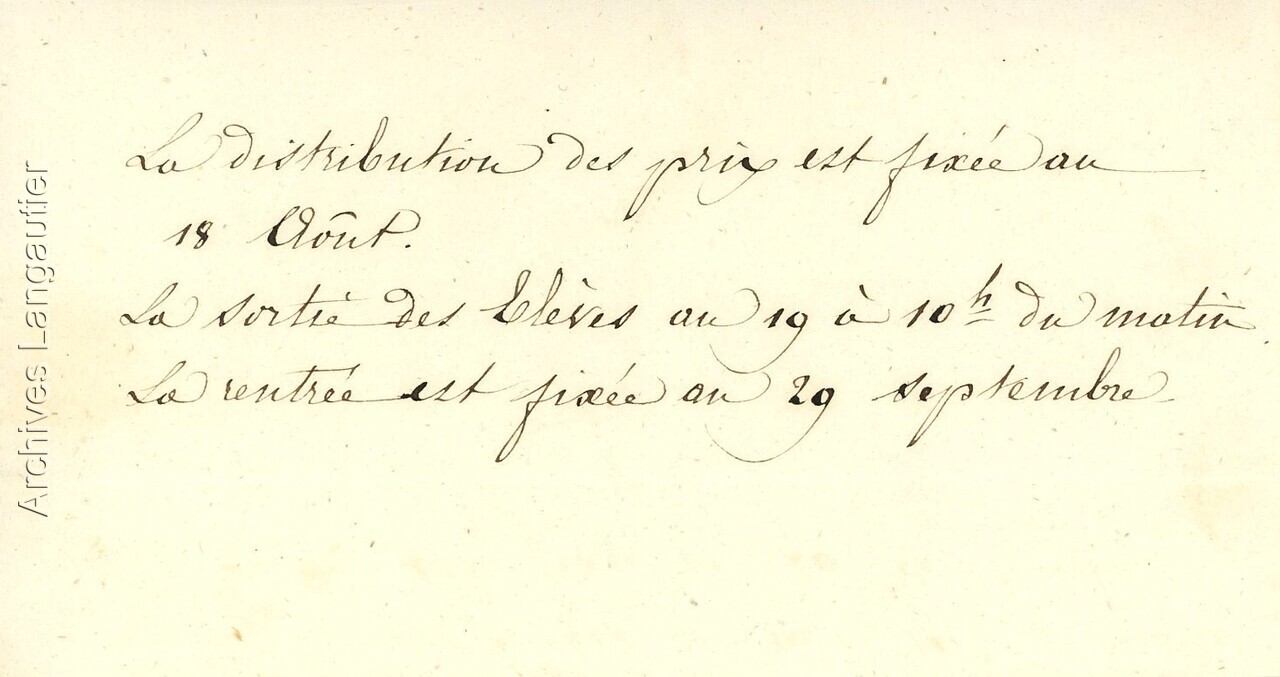 La distribution des prix est fixée au
18 Août.
La sortie des Elèves au 19 à 10h du matin
La rentrée est fixée au 29 septembre
Archives Langautier